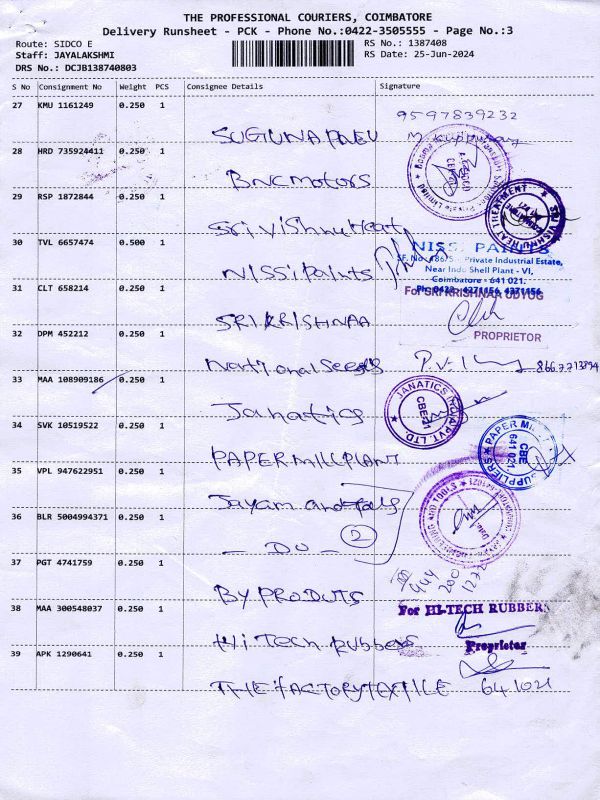 THE PROFESSIONAL COURIERS, COIMBATORE
Delivery Runsheet - PCK - Phone No.:0422-3505555 - Page No.:3
Route: SIDCO E
RS No.: 1387408
Staff: JAYALAKSHMI
RS Date: 25-Jun-2024
DRS No.: DCJB138740803
S No Consignment No Weight PCS Consignee Details Signature
27 KMU 1161249 0.250 1
9597839232
SUGUNA
28 HRD 735924411 0.250 1
BNC motors
29 RSP 1872844 0.250 1
Sri Vishnu Heat
SRI VISHNU HEAT TREATMENT
30 TVL 6657474 0.500 1
NISSI Paints
NISSI PAINTS
SF. No. 186/5 Private Industrial Estate,
Near Indo Shell Plant - VI,
Coimbatore - 641 021.
Ph: 0422 - 4271156, 4371156
31 CLT 658214 0.250 1
For SRI KRISHNAA UDYOG
SRI KRISHNAA
PROPRIETOR
32 DPM 452212 0.250 1
National Seeds
8667713894
33 MAA 108909186 0.250 1
Janatics
JANATICS INDIA PVT. LTD
CBE-21
34 SVK 10519522 0.250 1
PAPER MILL PLANT
PAPER MILL SUPPLIERS
CBE
641 021
35 VPL 947622951 0.250 1
Jayam and
36 BLR 5004994371 0.250 1
- DO - 2
37 PGT 4741759 0.250 1
944
200
1272
BY PRODUTS
38 MAA 300548037 0.250 1
For HI-TECH RUBBERS
Hi Tech Rubbers
Proprietor
39 APK 1290641 0.250 1
THE FACTORY TEXTILE 641021